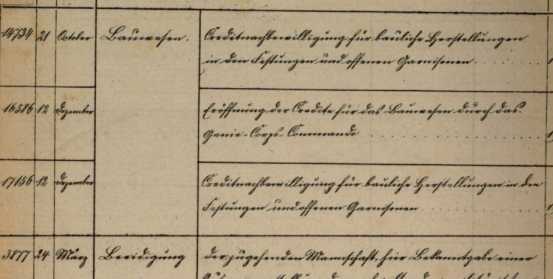 14734 21 October Bauwesen. Creditnachbewilligung für bauliche Herstellungen
in den Festungen und offenen Garnisonen
16386 12 Dezember Eröffnung der Credite für das Bauwesen durch das
Genie-Corps-Commando
17156 12 Dezember Creditnachbewilligung für bauliche Herstellungen in den
Festungen und offenen Garnisonen
3877 24 März Beeidigung der zugehenden Mannschaft, hier Bekanntgabe einer